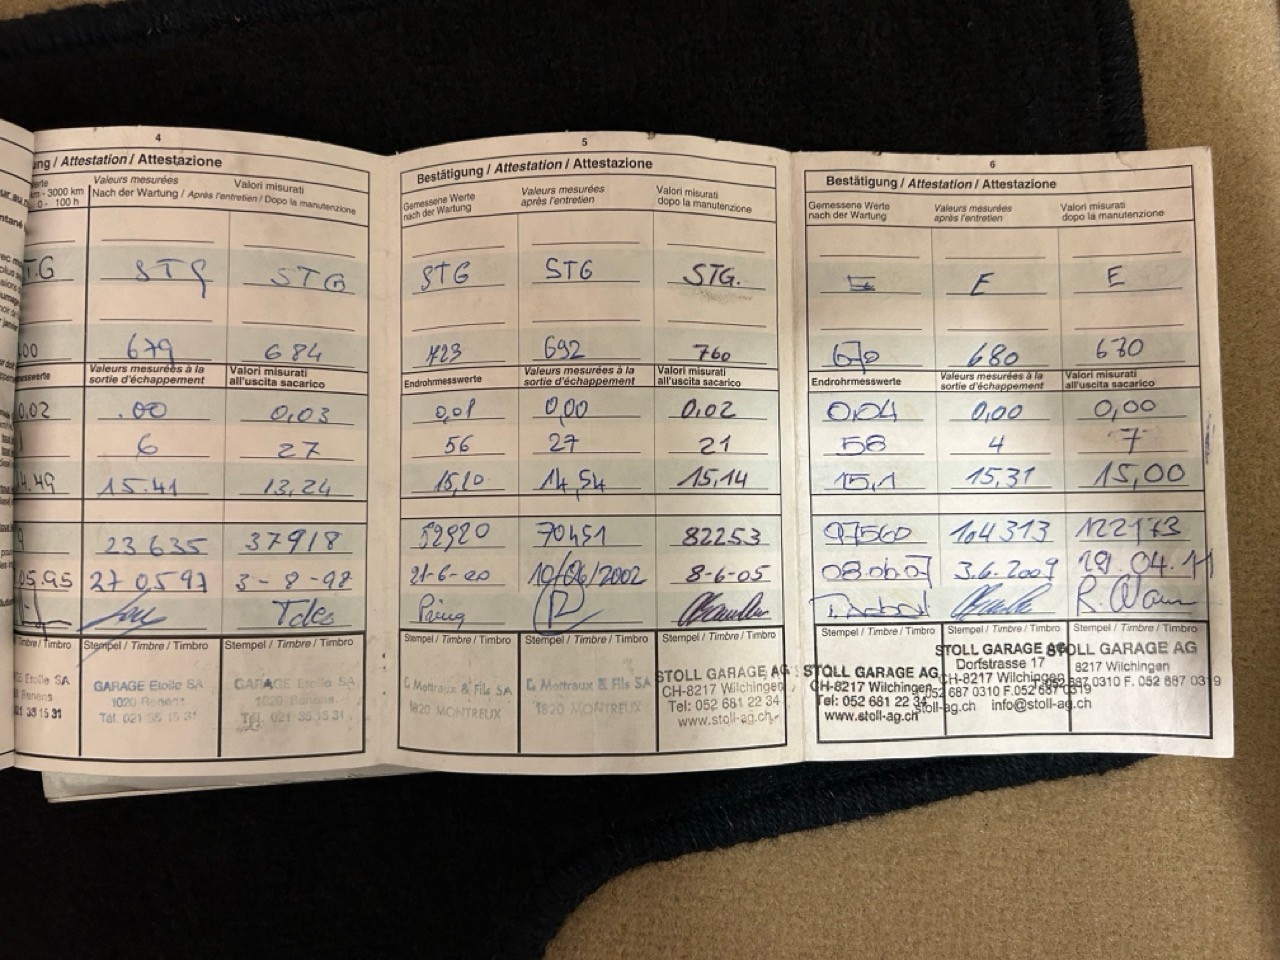 4
ung / Attestation / Attestazione
Valeurs mesurées
Valori misurati
km - 3000 km
0 - 100 h
Nach der Wartung / Après l'entretien / Dopo la manutenzione
STG
STG
679
684
Valeurs mesurées à la
sortie d'échappement
Valori misurati
all'uscita sacarico
0,02
.00
0,03
6
27
15.41
13,24
23 635
37918
05.95
27 05 97
3-8-98
Stempel / Timbre / Timbro
Stempel / Timbre / Timbro
GARAGE Etoile SA
1020 Renens
Tél. 021 35 15 31
GARAGE Etoile SA
1020 Renens
Tél. 021 35 15 31
5
Bestätigung / Attestation / Attestazione
Gemessene Werte
nach der Wartung
Valeurs mesurées
après l'entretien
Valori misurati
dopo la manutenzione
STG
STG
STG.
723
692
760
Endrohrmesswerte
Valeurs mesurées à la
sortie d'échappement
Valori misurati
all'uscita sacarico
0,01
0,00
0,02
56
27
21
15,10
14,54
15,14
52920
70451
82253
21-6-00
10/06/2002
8-6-05
Stempel / Timbre / Timbro
Stempel / Timbre / Timbro
Stempel / Timbre / Timbro
Mottraux & Fils SA
1820 MONTREUX
Mottraux & Fils SA
1820 MONTREUX
STOLL GARAGE AG
CH-8217 Wilchingen
Tel: 052 681 22 34
www.stoll-ag.ch
6
Bestätigung / Attestation / Attestazione
Gemessene Werte
nach der Wartung
Valeurs mesurées
après l'entretien
Valori misurati
dopo la manutenzione
E
E
E
670
680
670
Endrohrmesswerte
Valeurs mesurées à la
sortie d'échappement
Valori misurati
all'uscita sacarico
0,04
0,00
0,00
58
4
7
15,1
15,31
15,00
97560
104313
122173
08.06.07
3.6.2009
29.04.11
Stempel / Timbre / Timbro
Stempel / Timbre / Timbro
Stempel / Timbre / Timbro
STOLL GARAGE AG
CH-8217 Wilchingen
Tel: 052 681 22 34
www.stoll-ag.ch
STOLL GARAGE AG
Dorfstrasse 17
CH-8217 Wilchingen
052 687 0310 F. 052 687 0319
stoll-ag.ch info@stoll-ag.ch
STOLL GARAGE AG
8217 Wilchingen
687 0310 F. 052 687 0319